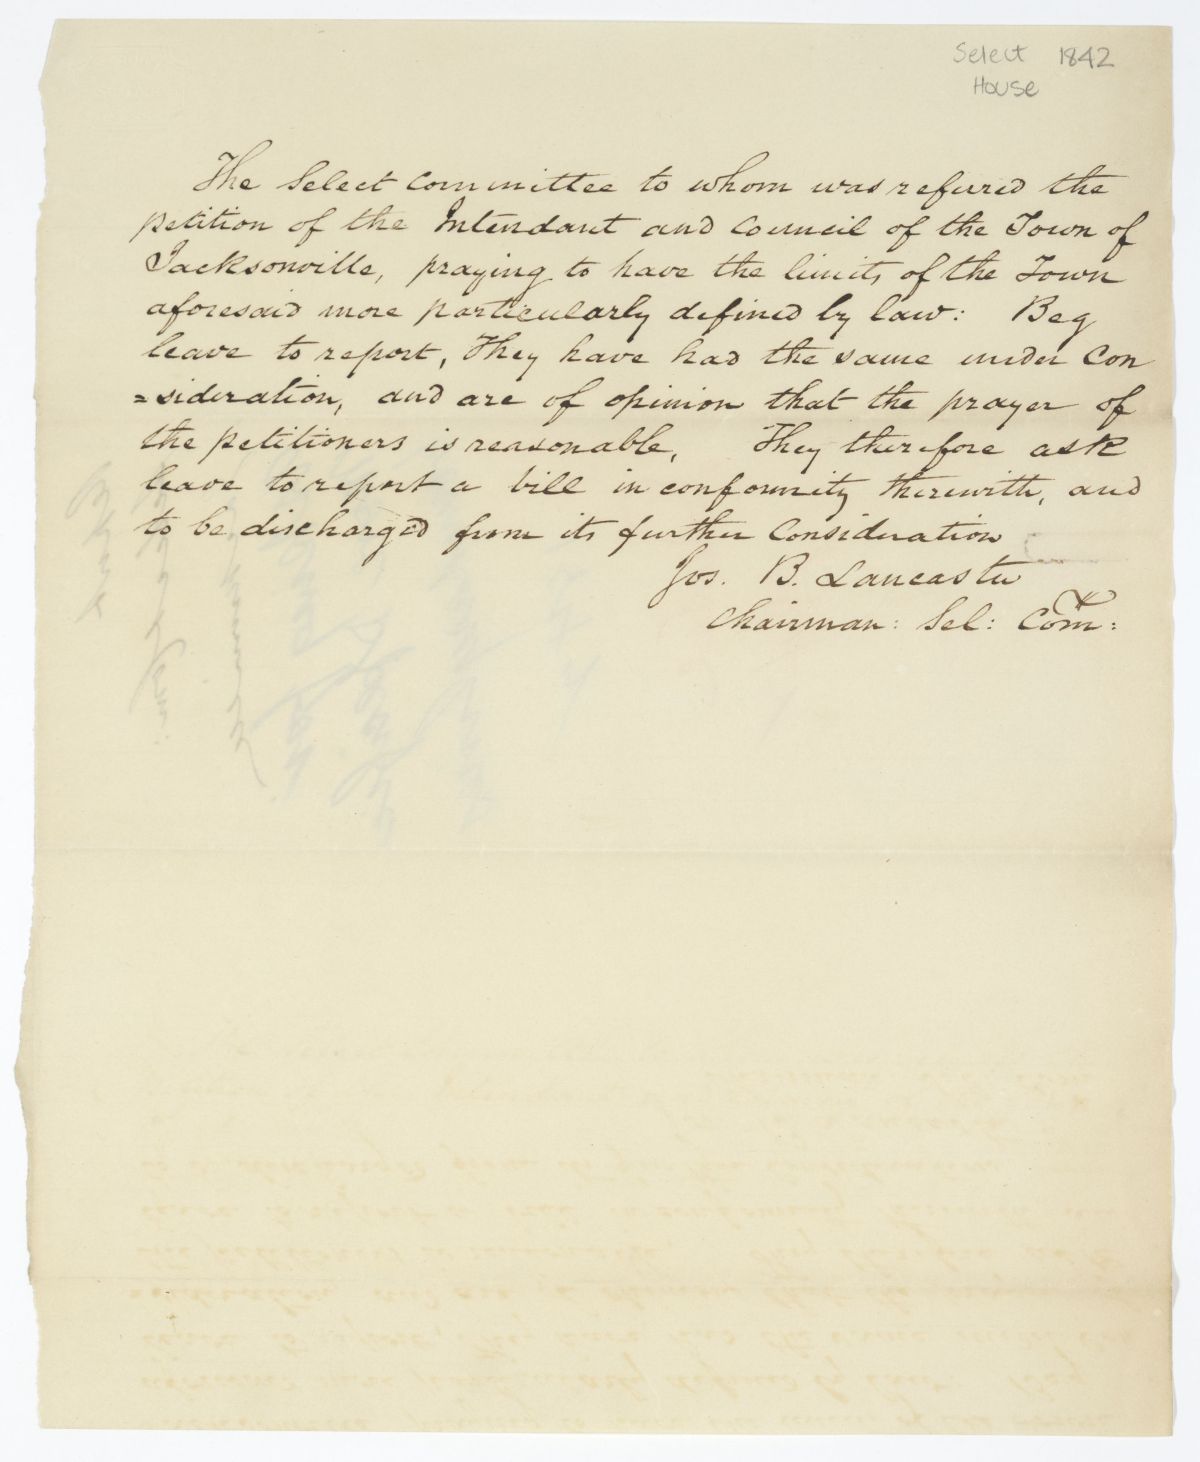 Select 1842
House
The Select Committee to whom was refered the
petition of the Intendant and Council of the Town of
Jacksonville, praying to have the limits of the Town
aforesaid more particularly defined by law: Beg
leave to report, They have had the same under Con
=sideration, and are of opinion that the prayer of
the petitioners is reasonable, They therefore ask
leave to report a bill in conformity therewith, and
to be discharged from its further Consideration
Jos. B. Lancaster
Chairman: Sel: Com: